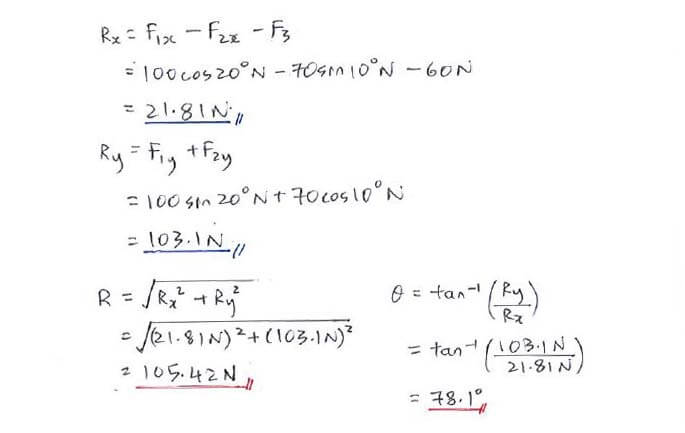 Rx = F1x − F2x − F3
= 100cos20°N − 70sin10°N − 60N
= 21.81N //
Ry = F1y + F2y
= 100 sin 20°N + 70cos10°N
= 103.1N //
R = √(Rx² + Ry²)
= √((21.81N)² + (103.1N)²)
= 105.42N //
θ = tan⁻¹ (Ry/Rx)
= tan⁻¹ (103.1N/21.81N)
= 78.1° //